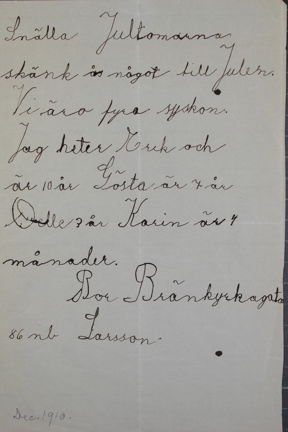 Snälla Jultomarna
skänk oss något till Julen.
Vi äro fyra syskon.
Jag heter Erik och
är 10 år Gösta är 7 år
Olle 3 år Karin är 4
månader.
Bor Bränkyrkagata
86 nb Larsson.
Dec. 1910.